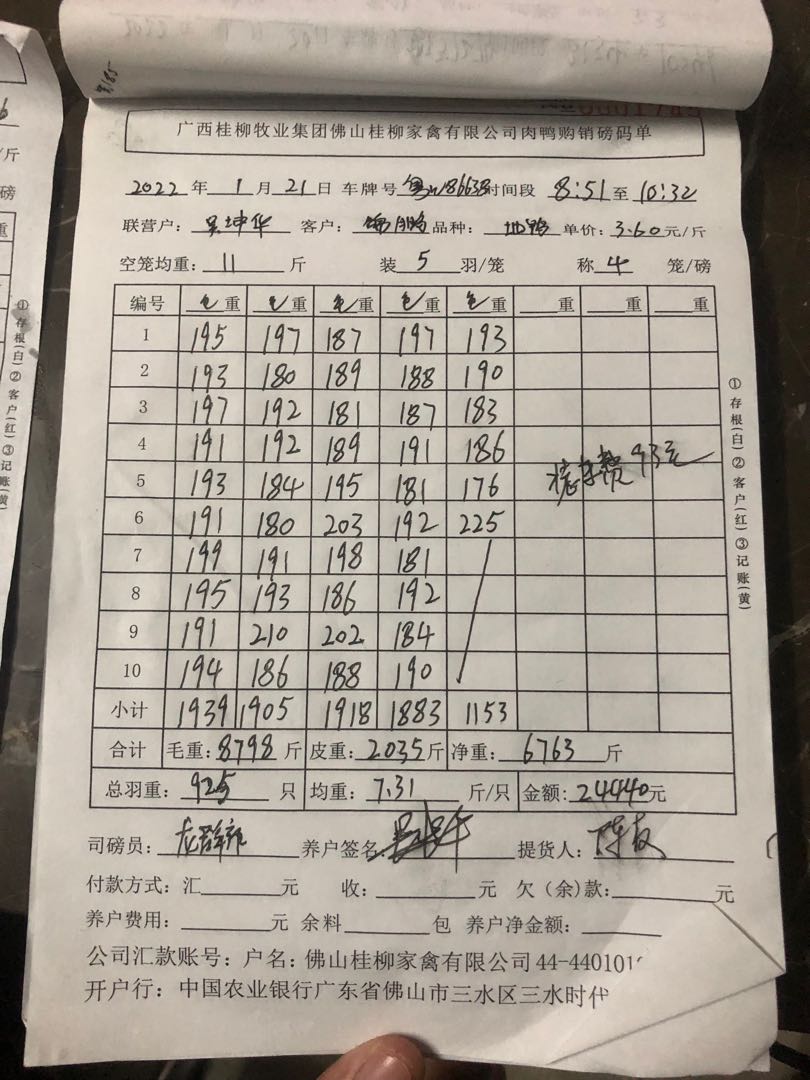 广西桂柳牧业集团佛山桂柳家禽有限公司肉鸭购销磅码单
2022 年 1 月 21 日 车牌号 时间段 8:51 至 10:32
联营户: 吴坤华 客户: 品种: 单价: 3.60 元/斤
空笼均重: 11 斤 装 5 羽/笼 称 4 笼/磅
编号 毛重 毛重 毛重 毛重 毛重 重 重 重
1 195 197 187 197 193
2 193 180 189 188 190
3 197 192 181 187 183
4 191 192 189 191 186
5 193 184 195 181 176
93元
6 191 180 203 192 225
7 199 191 198 181
8 195 193 186 192
9 191 210 202 184
10 194 186 188 190
小计 1939 1905 1918 1883 1153
合计 毛重: 8798 斤 皮重: 2035 斤 净重: 6763 斤
总羽重: 925 只 均重: 7.31 斤/只 金额: 24440 元
司磅员: 养户签名 提货人:
付款方式: 汇 元 收: 元 欠(余)款: 元
养户费用: 元 余料 包 养户净金额:
公司汇款账号: 户名: 佛山桂柳家禽有限公司 44-440101
开户行: 中国农业银行广东省佛山市三水区三水时代
①存根(白)②客户(红)③记账(黄)
①存根(白)②客户(红)③记账(黄)